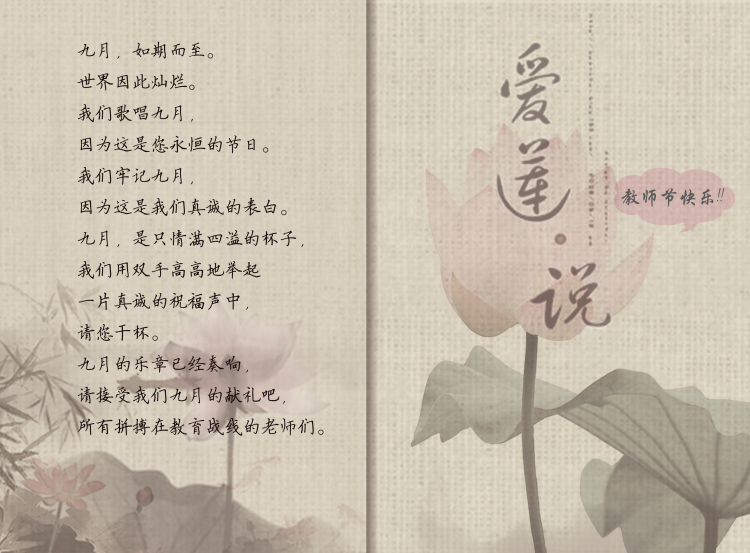 九月，如期而至。
世界因此灿烂。
我们歌唱九月，
因为这是您永恒的节日。
我们牢记九月，
因为这是我们真诚的表白。
九月，是只情满四溢的杯子，
我们用双手高高地举起
一片真诚的祝福声中，
请您干杯。
九月的乐章已经奏响，
请接受我们九月的献礼吧，
所有拼搏在教育战线的老师们。
爱莲·说
教师节快乐!!